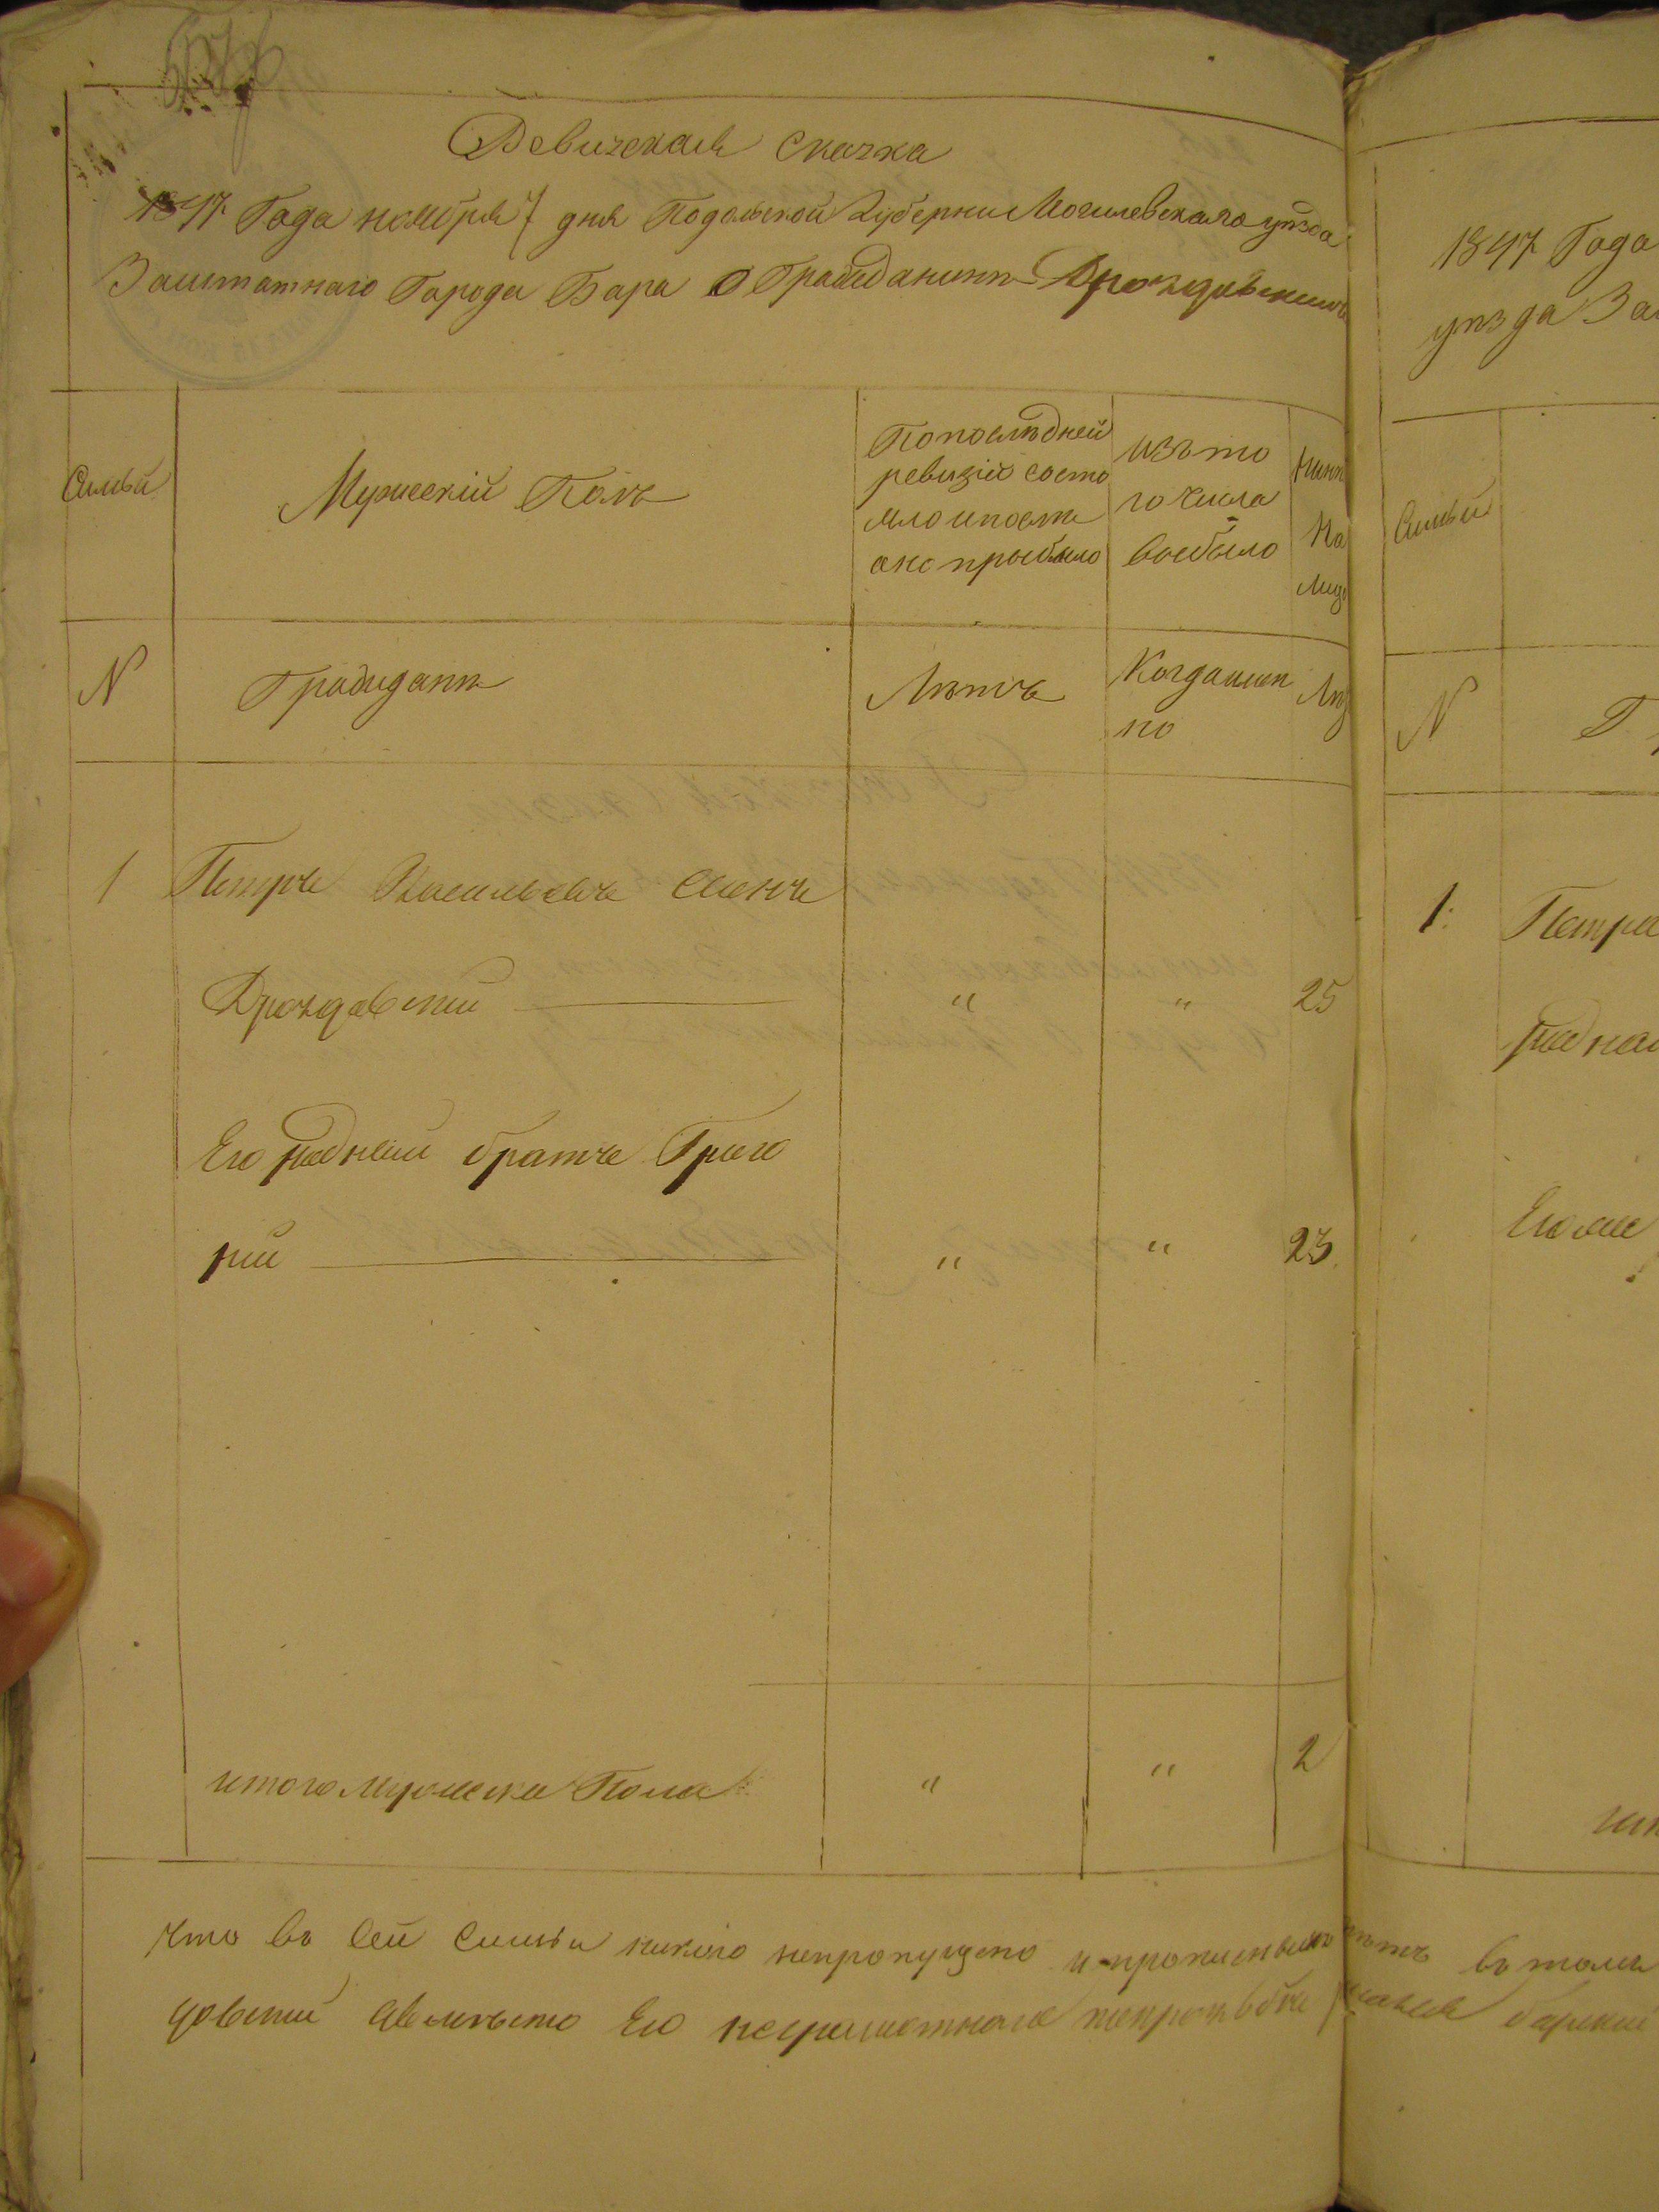 Ревизская Сказка
1847 Года ноября 7 дня Подольской Губерни Могилевскаго уѣзда
Заштатнаго Города Бара О Гражданинѣ Дрождовскимъ
Семьи
Мужескій Полъ
Попослѣдней
ревизіи состо
яло ипосли
оно прибыло
Изъ то
го числа
выбыло
Нынѣ
На
Лицо
N
Гражданѣ
Лѣтъ
Когдаимен
но
Лѣ
1 Петръ Васильевъ Сынъ
Дрождовский " " 25
Его родный братъ Григо
рий " " 23
итого Мужеска Пола " " 2
что въ сей Семьи никого непропущено и прописныхъ нѣтъ въ томъ
довский авместо Его неграмотнаго барский
1847 Года
уѣзда За
Семьи
N
Г
1: Петра
родная
Его же